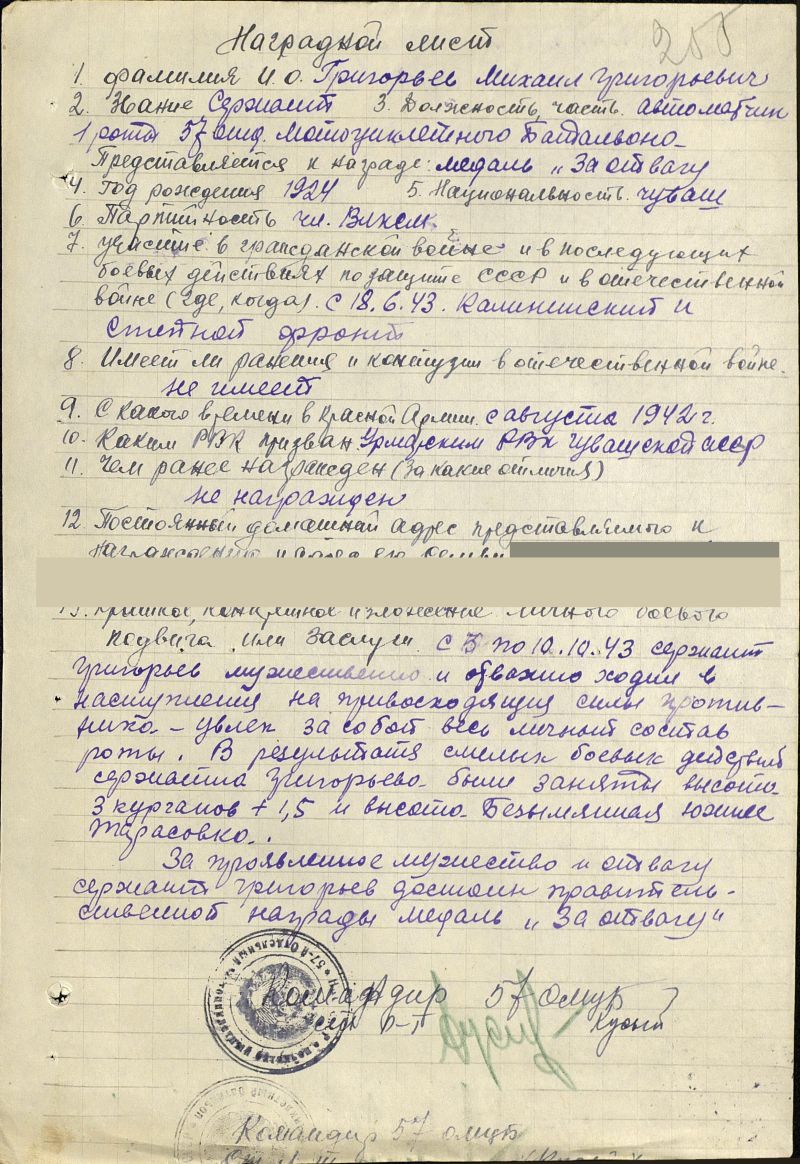 Наградной лист
255
1. Фамилия И.О. Григорьев Михаил Григорьевич
2. Звание Сержант 3. Должность, часть. автоматчик
1 роты 57 отд. Мотоциклетного Батальона
Представляется к награде: медаль „За отвагу
4. Год рождения 1924 5. Национальность. чуваш
6. Партийность чл. Влксм
7. участие в гражданской войне и в последующих
боевых действиях по защите СССР и в отечественной
войне (где, когда). с 18.6.43. Калининский и
Степной фронт
8. Имеет ли ранения и контузии в отечественной войне.
не имеет
9. С какого времени в Красной Армии. с августа 1942 г.
10. Каким РВК призван Урмарским РВК Чувашской АССР
11. Чем ранее награжден (за какие отличия)
не награжден
12. Постоянный домашний адрес представляемого к
награждению и адрес его семьи
13. Краткое, конкретное изложение личного боевого
подвига или заслуги. с 5 по 10.10.43 сержант
Григорьев мужественно и отважно ходил в
наступления на привосходящие силы против-
ника – увлек за собой весь личный состав
роты. В результате смелых боевых действий
сержанта Григорьева были заняты высота
3 курганов +1,5 и высота Безымянная южнее
Тарасовка.
За проявленное мужество и отвагу
сержант Григорьев достоин правитель-
ственной награды медаль „За отвагу"
57-й Отдельный
Командир 57 омцб
Командир 57 омцб